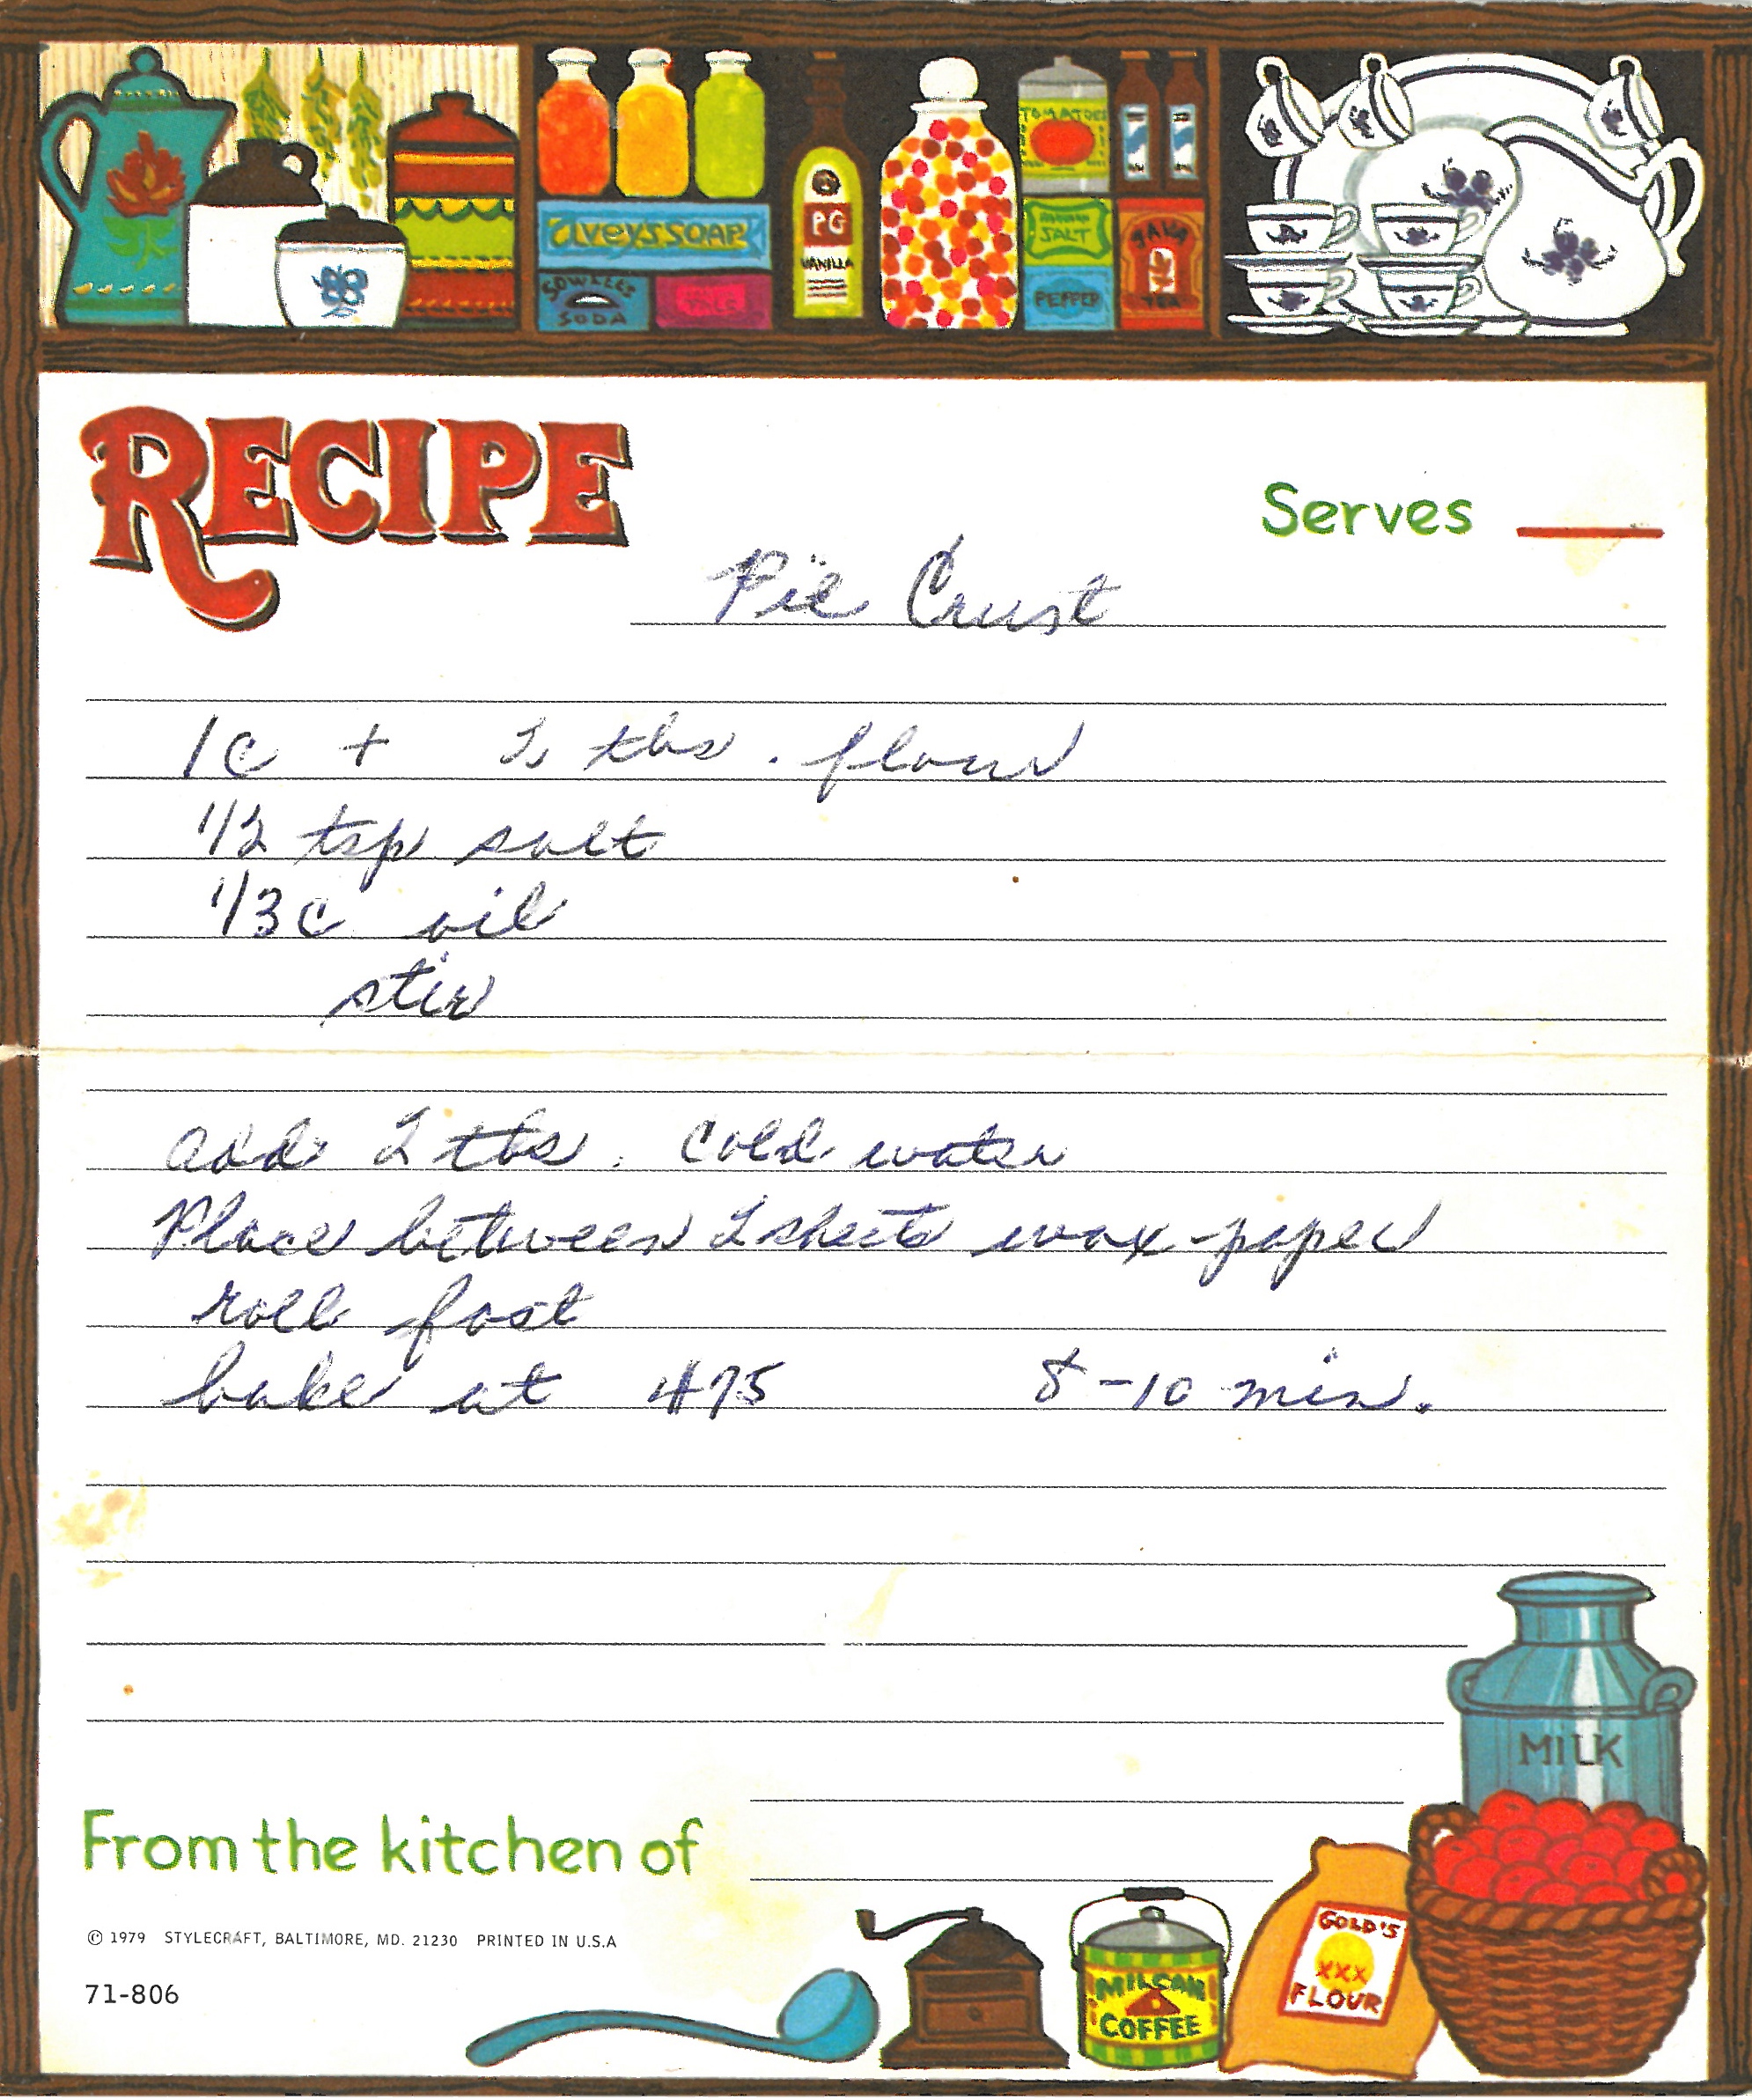 TOMATOES
Ivey's SOAP
PG
SALT
JAVA
VANILLA
SOWLES
SODA
PEPPER
TEA
RECIPE
Serves
Pie Crust
1c + 2 tbs. flour
1/2 tsp salt
1/3 c oil
stir
add 2 tbs. cold water
Place between 2 sheets wax-paper
roll fast
bake at 475 8-10 min.
MILK
From the kitchen of
© 1979 STYLECRAFT, BALTIMORE, MD. 21230 PRINTED IN U.S.A
71-806
GOLD'S
XXX
FLOUR
MILCAN
COFFEE